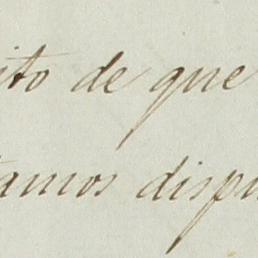 ito de que
tamos dispu